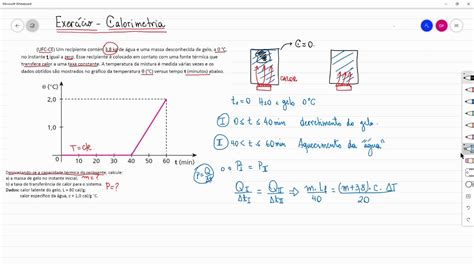 Microsoft Whiteboard
Exercício - Calorimetria
(UFC-CE) Um recipiente contém 3,8 kg de água e uma massa desconhecida de gelo, a 0 °C,
no instante t igual a zero. Esse recipiente é colocado em contato com uma fonte térmica que
transfere calor a uma taxa constante. A temperatura da mistura é medida várias vezes e os
dados obtidos são mostrados no gráfico da temperatura θ (°C) versus tempo t (minutos) abaixo.
C=0.
CALOR
θ (°C)
2,0
1,0
T=cte
0 10 20 30 40 50 60 t (min)
t₀=0 H₂O e gelo 0°C
I 0<t≤40min derretimento do gelo.
II 40<t≤60min Aquecimento da "água"
P=Q/Δt
P_I = P_II
Q_I/Δt_I = Q_II/Δt_II ⇒ m.L_f/40 = (m+3,8).c.ΔT/20
Desprezando-se a capacidade térmica do recipiente, calcule:
a) a massa de gelo no instante inicial. m=?
b) a taxa de transferência de calor para o sistema. P=?
Dados: calor latente do gelo, L = 80 cal/g;
calor específico da água, c = 1,0 cal/g °C.